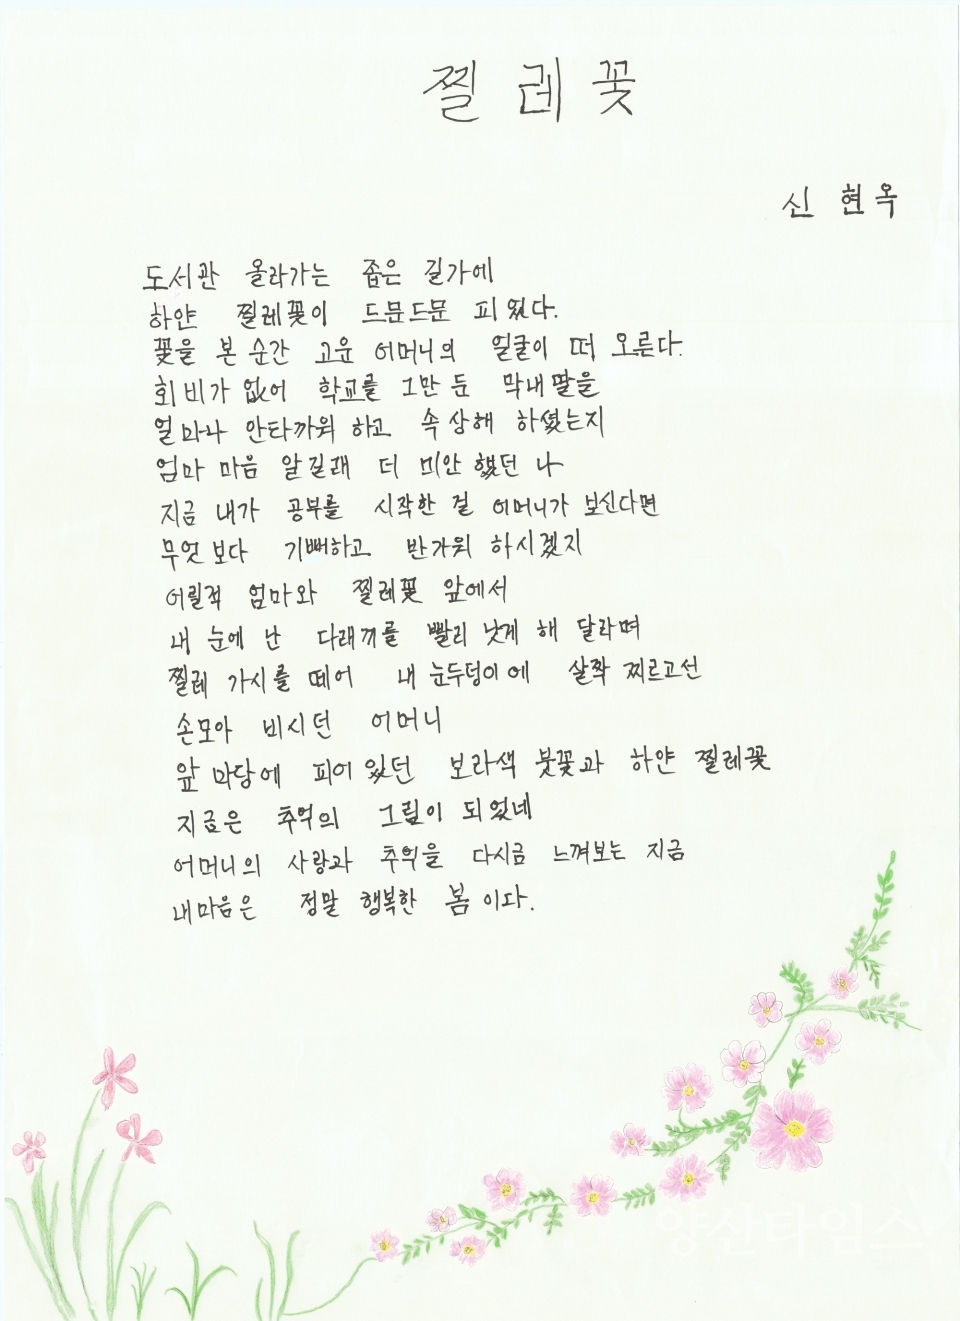 찔레꽃
신현옥
도서관 올라가는 좁은 길가에
하얀 찔레꽃이 드문드문 피었다.
꽃을 본 순간 고운 어머니의 얼굴이 떠 오른다.
회비가 없어 학교를 그만 둔 막내딸을
얼마나 안타까워 하고 속상해 하셨는지
엄마 마음 알길래 더 미안했던 나
지금 내가 공부를 시작한 걸 어머니가 보신다면
무엇보다 기뻐하고 반가워 하시겠지
어릴적 엄마와 찔레꽃 앞에서
내 눈에 난 다래끼를 빨리 낫게 해 달라며
찔레 가시를 떼어 내 눈두덩이에 살짝 찌르고선
손모아 비시던 어머니
앞 마당에 피어있던 보라색 붓꽃과 하얀 찔레꽃
지금은 추억의 그림이 되었네
어머니의 사랑과 추억을 다시금 느껴보는 지금
내마음은 정말 행복한 봄이다.
양산타임스